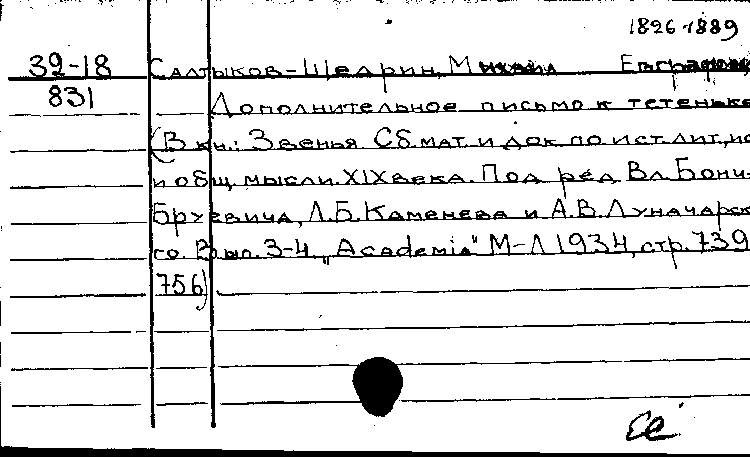 1826-1889
39-18 Салтыков-Щедрин, Михаил Евграфович
831 Дополнительное письмо к тетеньке
(В кн.: Звенья Сб. мат. и док. по ист. лит., ис
и общ. мысли XIX века. Под ред. Вл. Бонч-
Бруевича, Л.Б. Каменева и А.В. Луначарск
го. Вып. 3-4, "Academia" М-Л 1934, стр. 739
756)